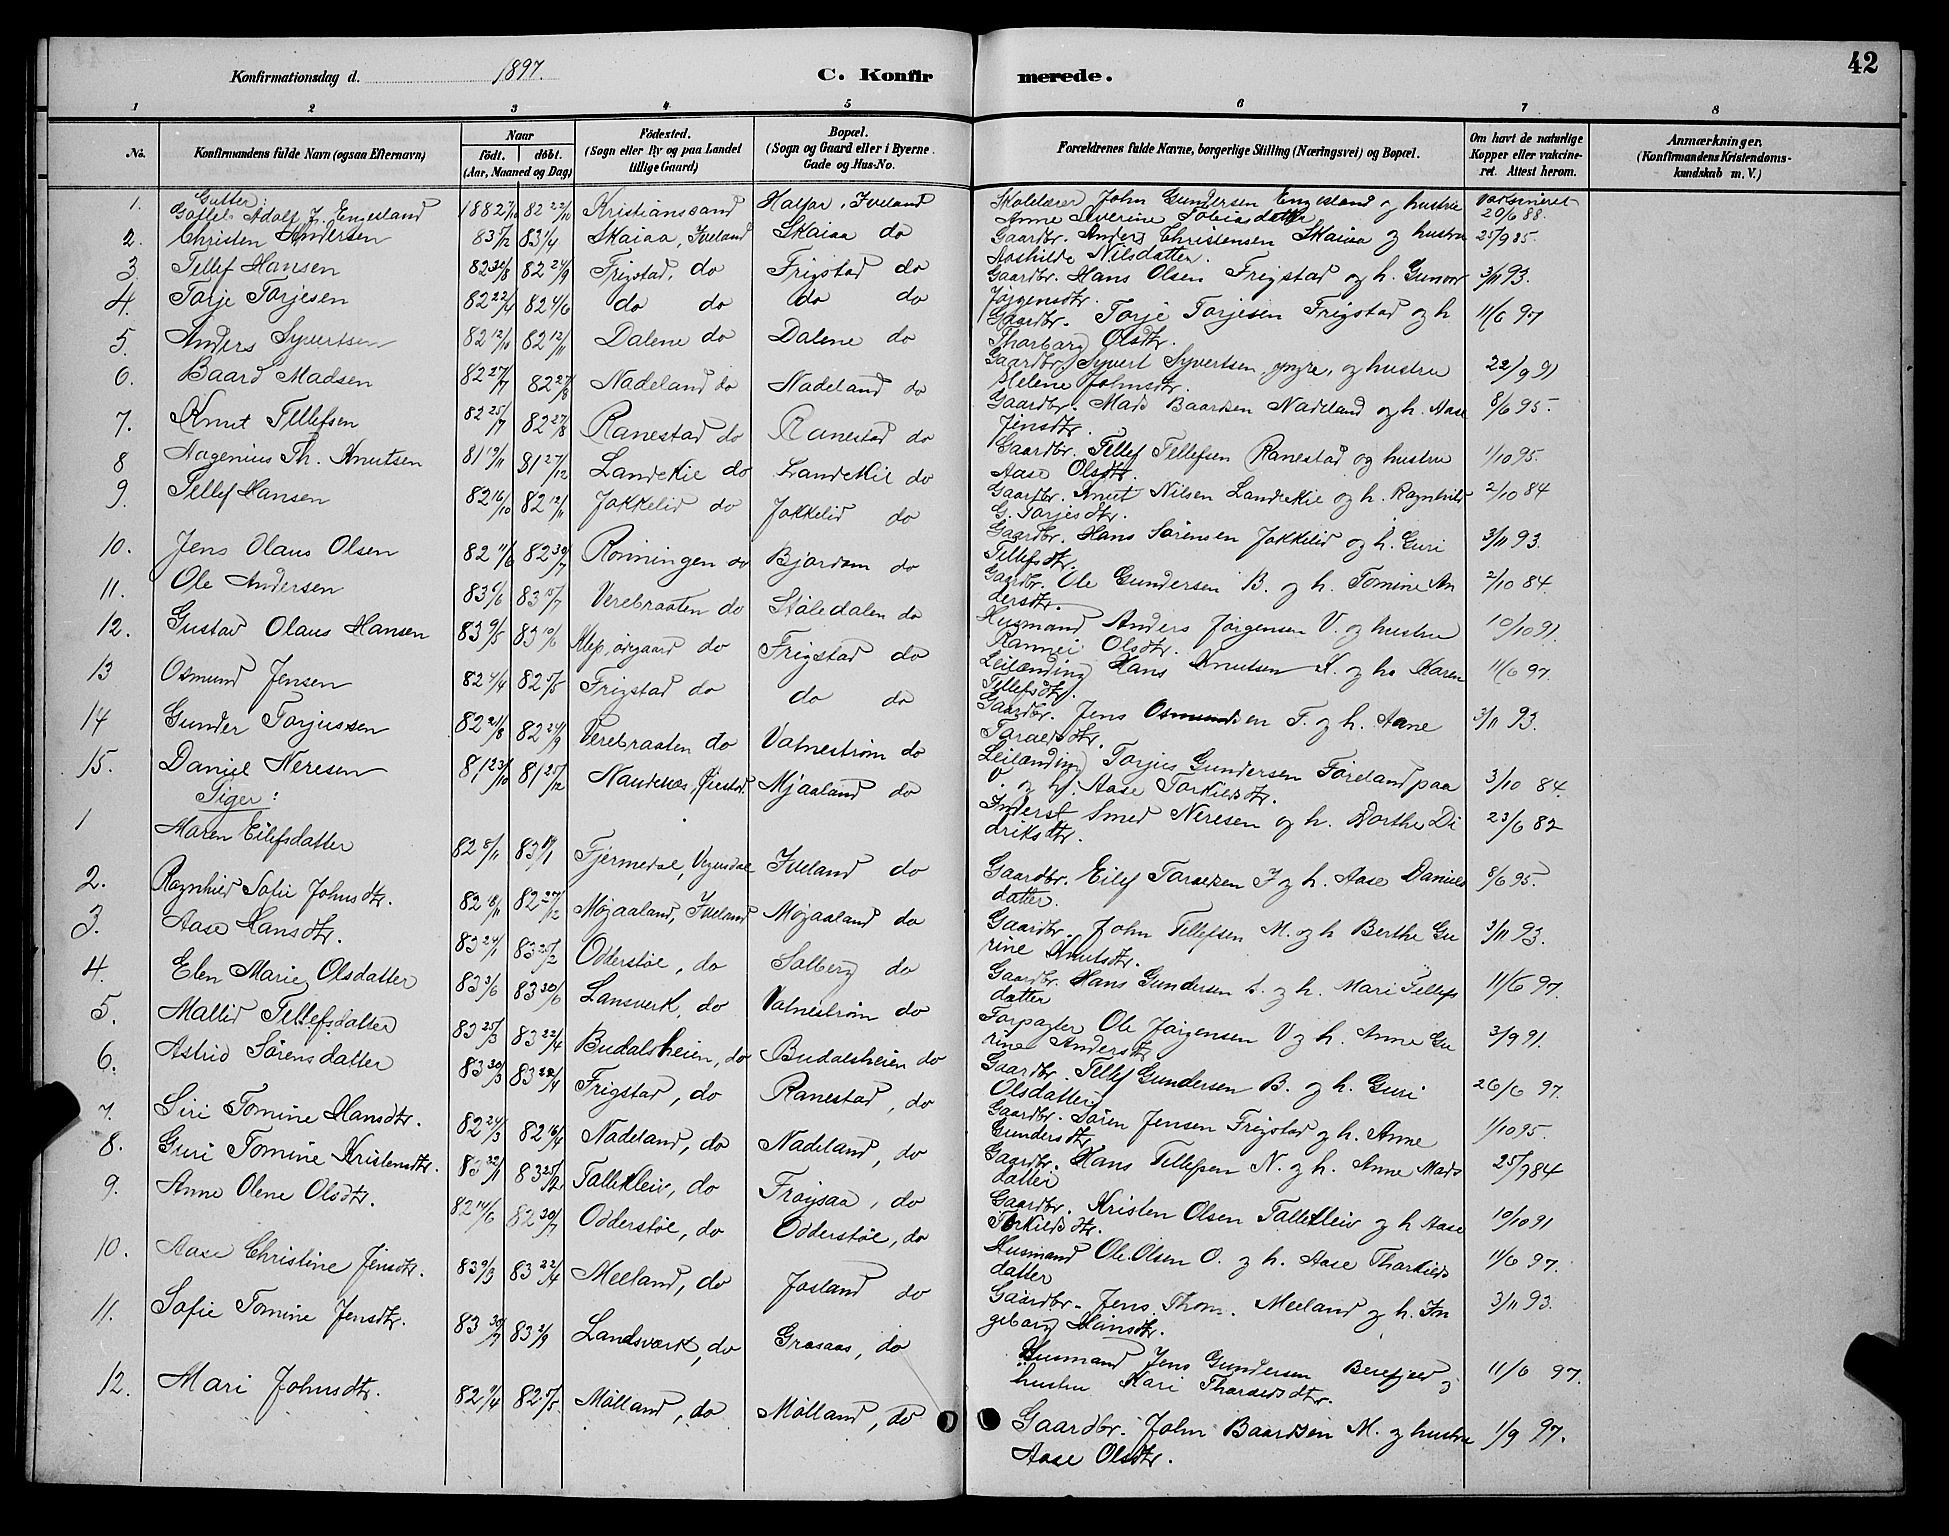 42
Konfirmationsdag d. 1897. C. Konfirmerede.
1 2 3 4 5 6 7 8
No. Konfirmandens fulde Navn (ogsaa Efternavn) Naar født. døbt. (Aar, Maaned og Dag) Fødested. (Sogn eller By og paa Landet tillige Gaard) Bopæl. (Sogn og Gaard eller i Byerne Gade og Hus-No. Forældrenes fulde Navne, borgerlige Stilling (Næringsvei) og Bopæl. Om havt de naturlige Kopper eller vakcineret. Attest herom. Anmærkninger. (Konfirmandens Kristendomskundskab m. V.)
Gutter:
1. Adolf J. Engesland 1882 82 22/10 Kristianssand Iveland Skolelærer John Gundersen Engesland og hustru Anne Severine Tobiasdatter vaksineret 20/6 88.
2. Christen Andersen 83 5/2 83 1/4 Skaiaa, Iveland Skaiaa do Gaardbr. Anders Christensen Skaiaa og hustru Aashilde Nilsdatter. 25/9 85.
3. Tellef Hansen 82 30/8 82 24/9 Frigstad, do Frigstad do Gaardbr. Hans Olsen Frigstad og h. Gunvor Jørgensdtr. 3/11 93.
4. Torje Torjesen 82 22/4 82 4/6 do do do do Gaardbr. Torje Torjesen Frigstad og h Thorborg Olsdtr. 11/6 97
5. Anders Syvertsen 82 12/10 82 12/11 Dalene do Dalene do Gaardbr. Syvert Syvertsen, yngre, og hustru Helene Johnsdtr. 22/9 91
6. Baard Madsen 82 27/7 82 27/8 Nadeland do Nadeland do Gaardbr. Mads Baardsen Nadeland og h. Aase Jensdtr. 8/6 95.
7. Knut Tellefsen 82 25/7 82 27/8 Ranestad do Ranestad do Gaardbr. Tellef Tellefsen Ranestad og hustru Aase Olsdtr. 1/10 95.
8 Aagenius Th. Knutsen 81 19/11 81 27/12 Landekie do Landekil do Gaardbr. Knut Nilsen Landekie og h. Ragnhild G. Torjesdtr. 2/10 84
9. Tellef Hansen 82 16/10 82 12/11 Jokkelid do Jokkelid do Gaardbr. Hans Sørensen Jokkelid og h. Guri Tellefsdtr. 3/11 93.
10. Jens Olaus Olsen 82 11/6 82 30/7 Rønningen do Bjørdam do Gaardbr. Ole Gundersen B. og h. Tomine Andersdtr. 2/10 84.
11. Ole Andersen 83 6/6 83 15/7 Verebraaten do Støledalen do Husmand Anders Jørgensen V. og hustru Rannei Olsdtr. 10/10 91.
12. Gustav Olaus Hansen 83 9/5 83 10/6 Klep, ørgaard do Frigstad do Leilænding Hans Knutsen K. og h. Karen Tellefsdtr. 11/6 97.
13 Osmund Jensen 82 4/4 82 5/5 Frigstad do do do Gaardbr. Jens Osmundsen F. og h. Aane Taraldsdtr. 3/11 93.
14 Gunder Torjussen 82 21/8 82 24/9 Verebraaten do Vatnestrøm do Leilænding Torjus Gundersen Føreland paa V. og h. Aase Torkildsdtr. 3/10 84.
15. Daniel Neresen 81 23/10 81 25/12 Naudenes, Øiestad. Mjaaland do Inderst Smed Neresen og h. Dorthe Didriksdtr. 23/6 82
Piger:
1 Maren Eilefsdatter 82 5/11 83 1/1 Fjermedal, Vegusdal Iveland do Gaardbr. Eilef Taraldsen I og h. Aase Danielsdatter. 8/6 95.
2. Ragnhild Sofie Johnsdtr. 82 18/11 82 27/12 Mojaaland, Iveland Mojaaland do Gaardbr. John Tellefsen M. og h Berthe Gurine Knutsdtr. 3/11 93.
3. Aase Hansdtr. 83 24/1 83 25/2 Odderstøl, do Solberg do Gaardbr. Hans Gundersen S. og h. Mari Tellefsdatter 11/6 97.
4. Elen Marie Olsdatter 83 3/6 83 30/6 Lansverk, do Vatnestrøm do Forpagter Ole Jørgensen V og h. Anne Gurine Andersdtr 3/9 91.
5. Mallid Tellefsdatter 83 25/3 83 22/4 Budalsheien, do Budalsheien do Gaardbr. Tellef Gundersen B. og h. Guri Olsdatter 26/6 97.
6. Astrid Sørensdatter 83 30/3 83 22/4 Frigstad, do Ranestad, do Gaardbr. Søren Jensen Frigstad og h. Anne Gundersdtr. 1/10 95.
7. Siri Tomine Hansdtr. 82 24/3 82 16/4 Nadeland, do Nadeland, do Gaardbr. Hans Tellefsen N. og h. Anne Madsdatter 25/9 84
8. Guri Tomine Kristensdtr. 83 22/1 83 25/2 Tallekleiv, do Frøysaa, do Gaardbr. Kristen Olsen Tallekleiv og h Aase Torkildsdtr. 10/10 91
9. Anne Olene Olsdtr. 82 14/6 82 30/7 Odderstøl, do Odderstøl, do Husmand Ole Olsen O. og h. Aase Thorkildsdatter 11/6 97.
10. Aase Christine Jensdtr. 83 9/3 83 22/4 Meeland, do Josland do Gaardbr. Jens Thom. Meeland og h. Ingeborg Hansdtr. 3/11 93.
11. Sofie Tomine Jensdtr. 83 30/7 83 2/9 Landsverk, do Grosaas, do Husmand Jens Gundersen og hustru Kari Thoraldsdtr. 11/6 97.
12. Mari Johnsdtr. 82 9/4 82 5/5 Mølland, do Mølland, do Gaardbr. John Baardsen M. og hustru Aase Olsdtr. 1/9 97.